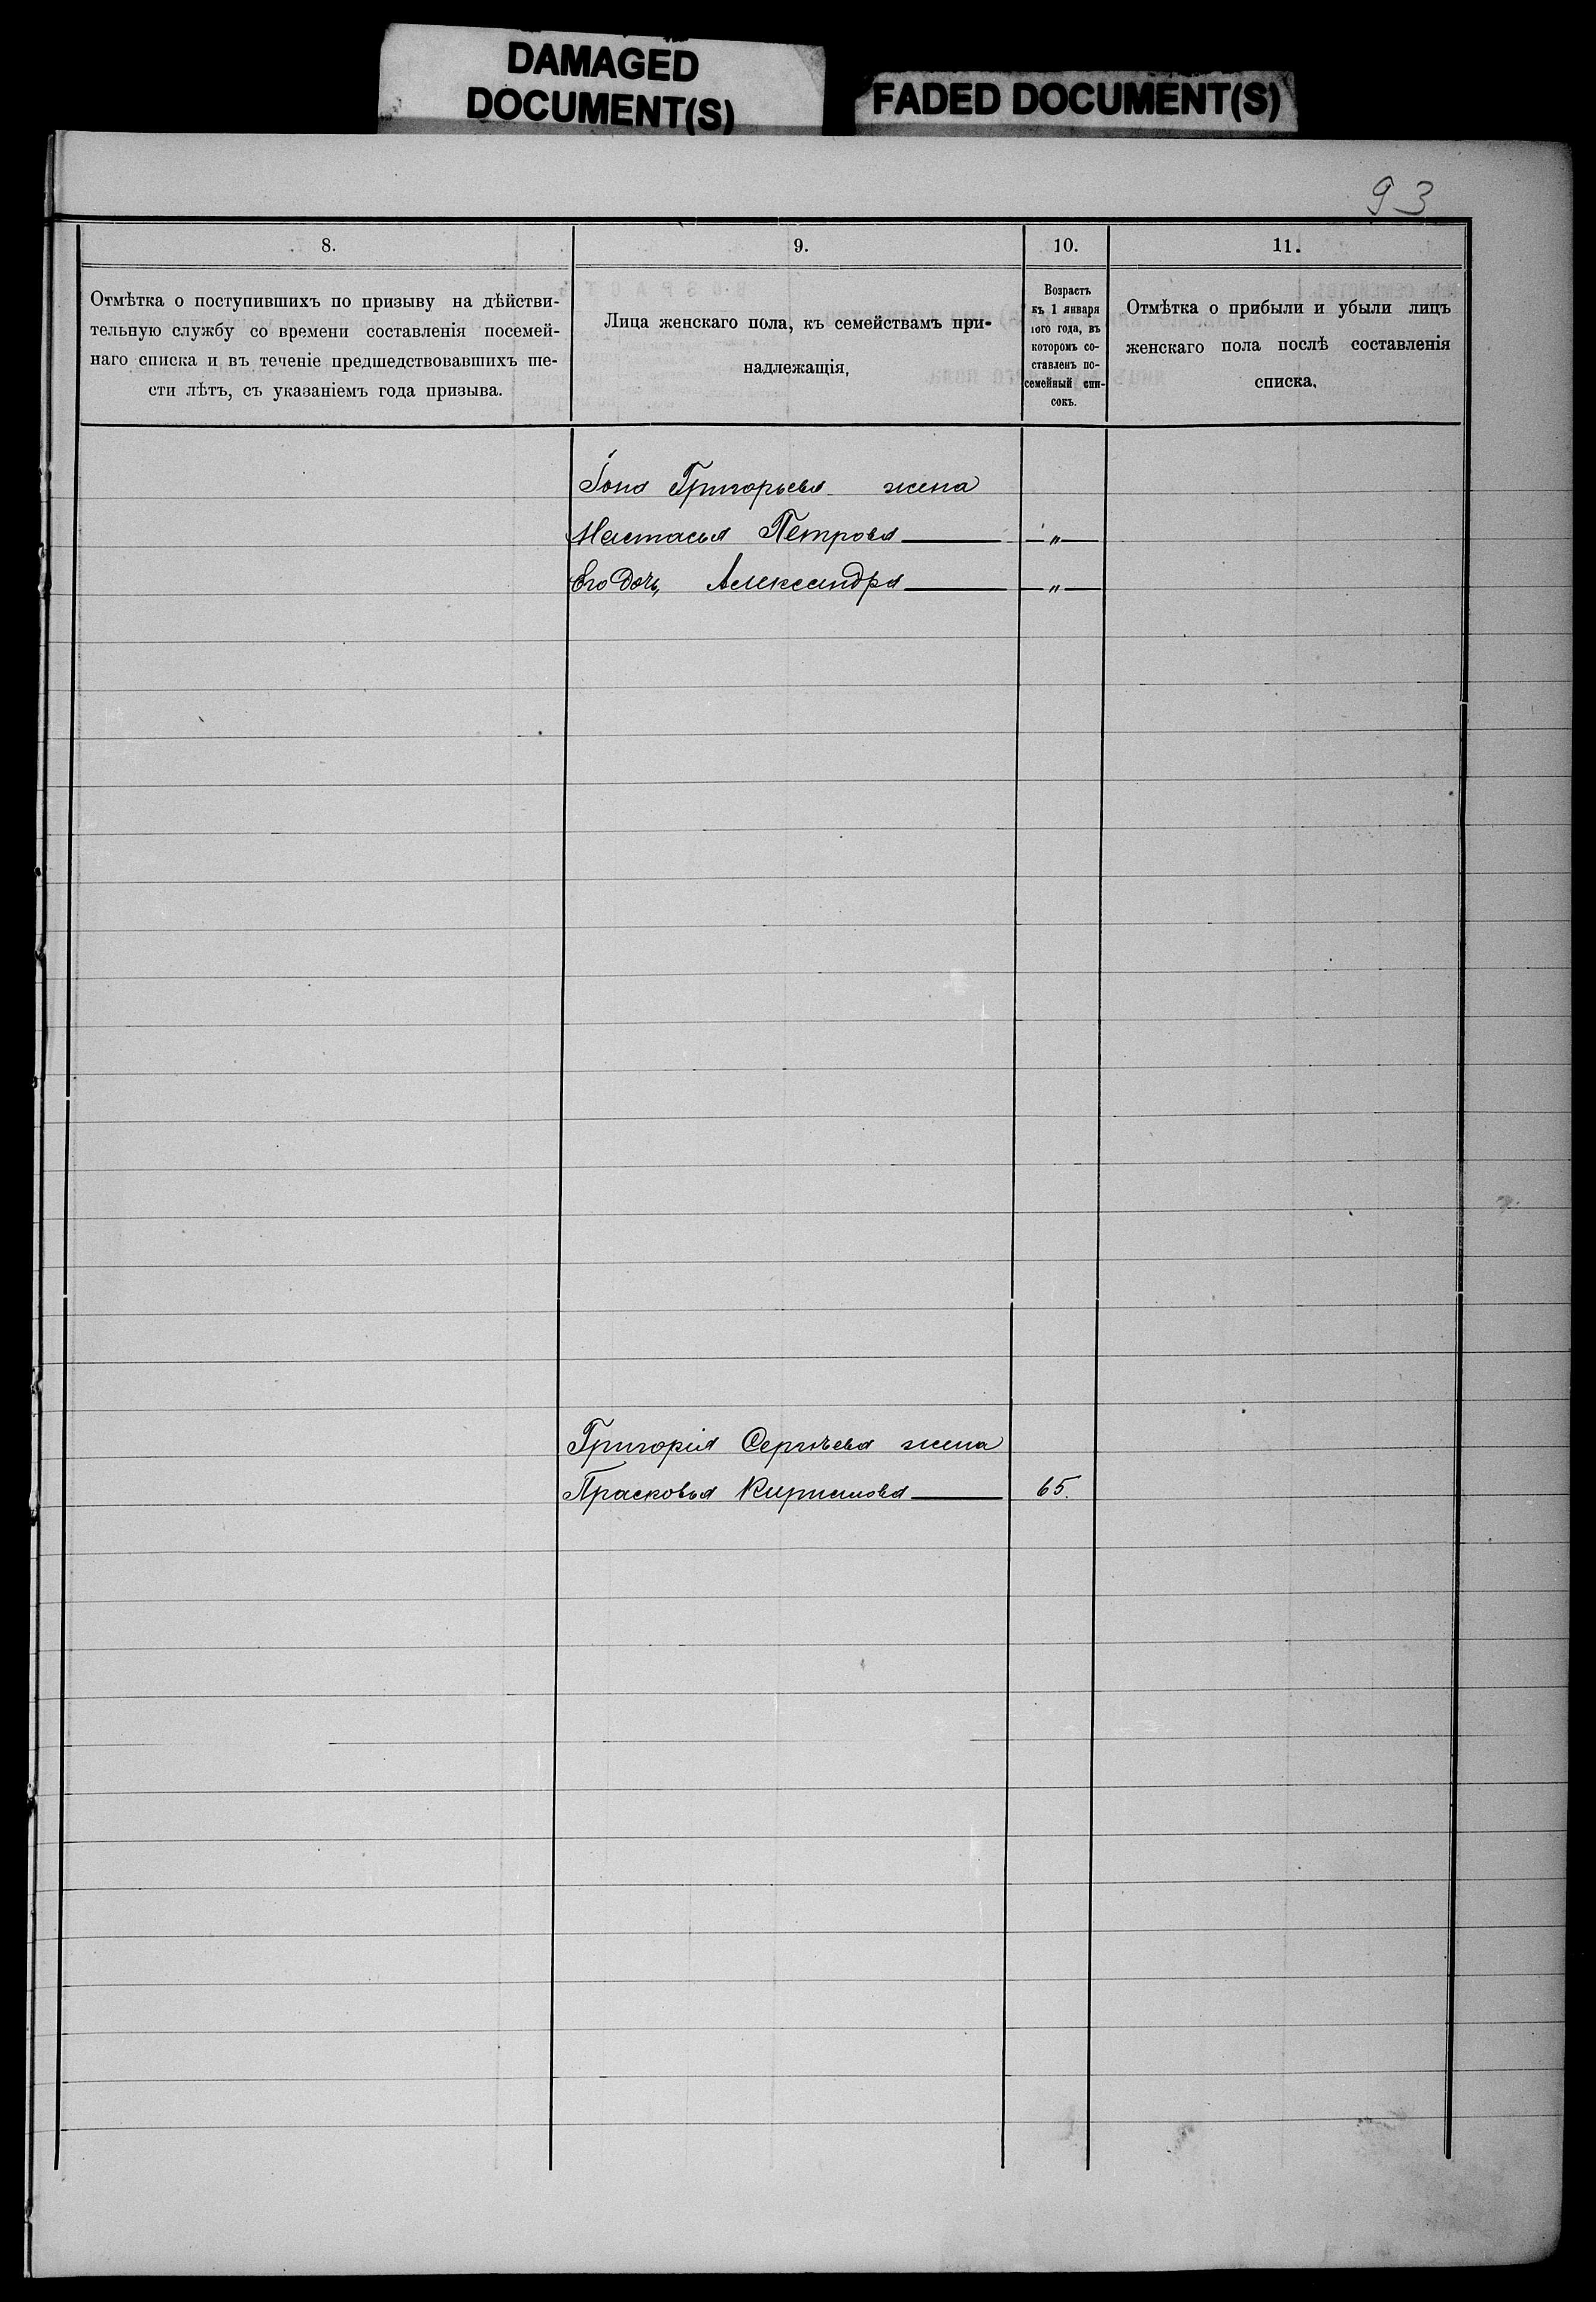 DAMAGED
DOCUMENT(S)
FADED DOCUMENT(S)
93
8.
9.
10.
11.
Отмѣтка о поступившихъ по призыву на дѣйстви-
тельную службу со времени составленія посемей-
наго списка и въ теченіе предшедствовавшихъ ше-
сти лѣтъ, съ указаніемъ года призыва.
Лица женскаго пола, къ семействамъ при-
надлежащія,
Возрастъ
къ 1 января
того года, въ
которомъ со-
ставленъ по-
семейный спи-
сокъ.
Отмѣтка о прибыли и убыли лицъ
женскаго пола послѣ составленія
списка.
Іона Григорьева жена
Настасья Петрова — „ —
Его дочь, Александра — „ —
Григорія Сергѣева жена
Прасковья Кирилова — 65.